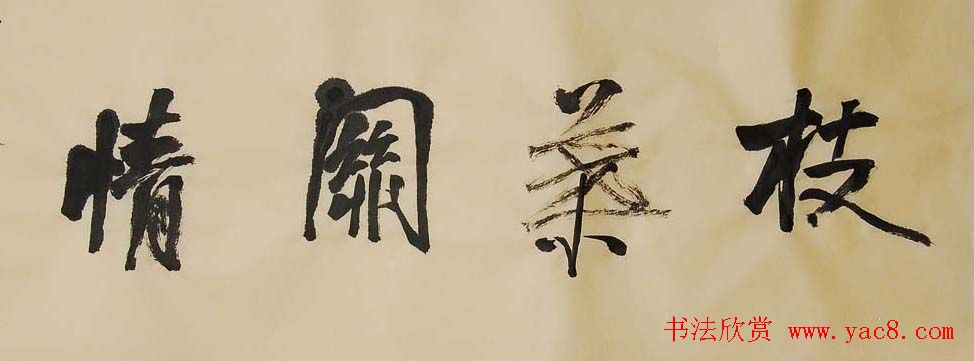 枝葉關情
书法欣赏 www.yac8.com